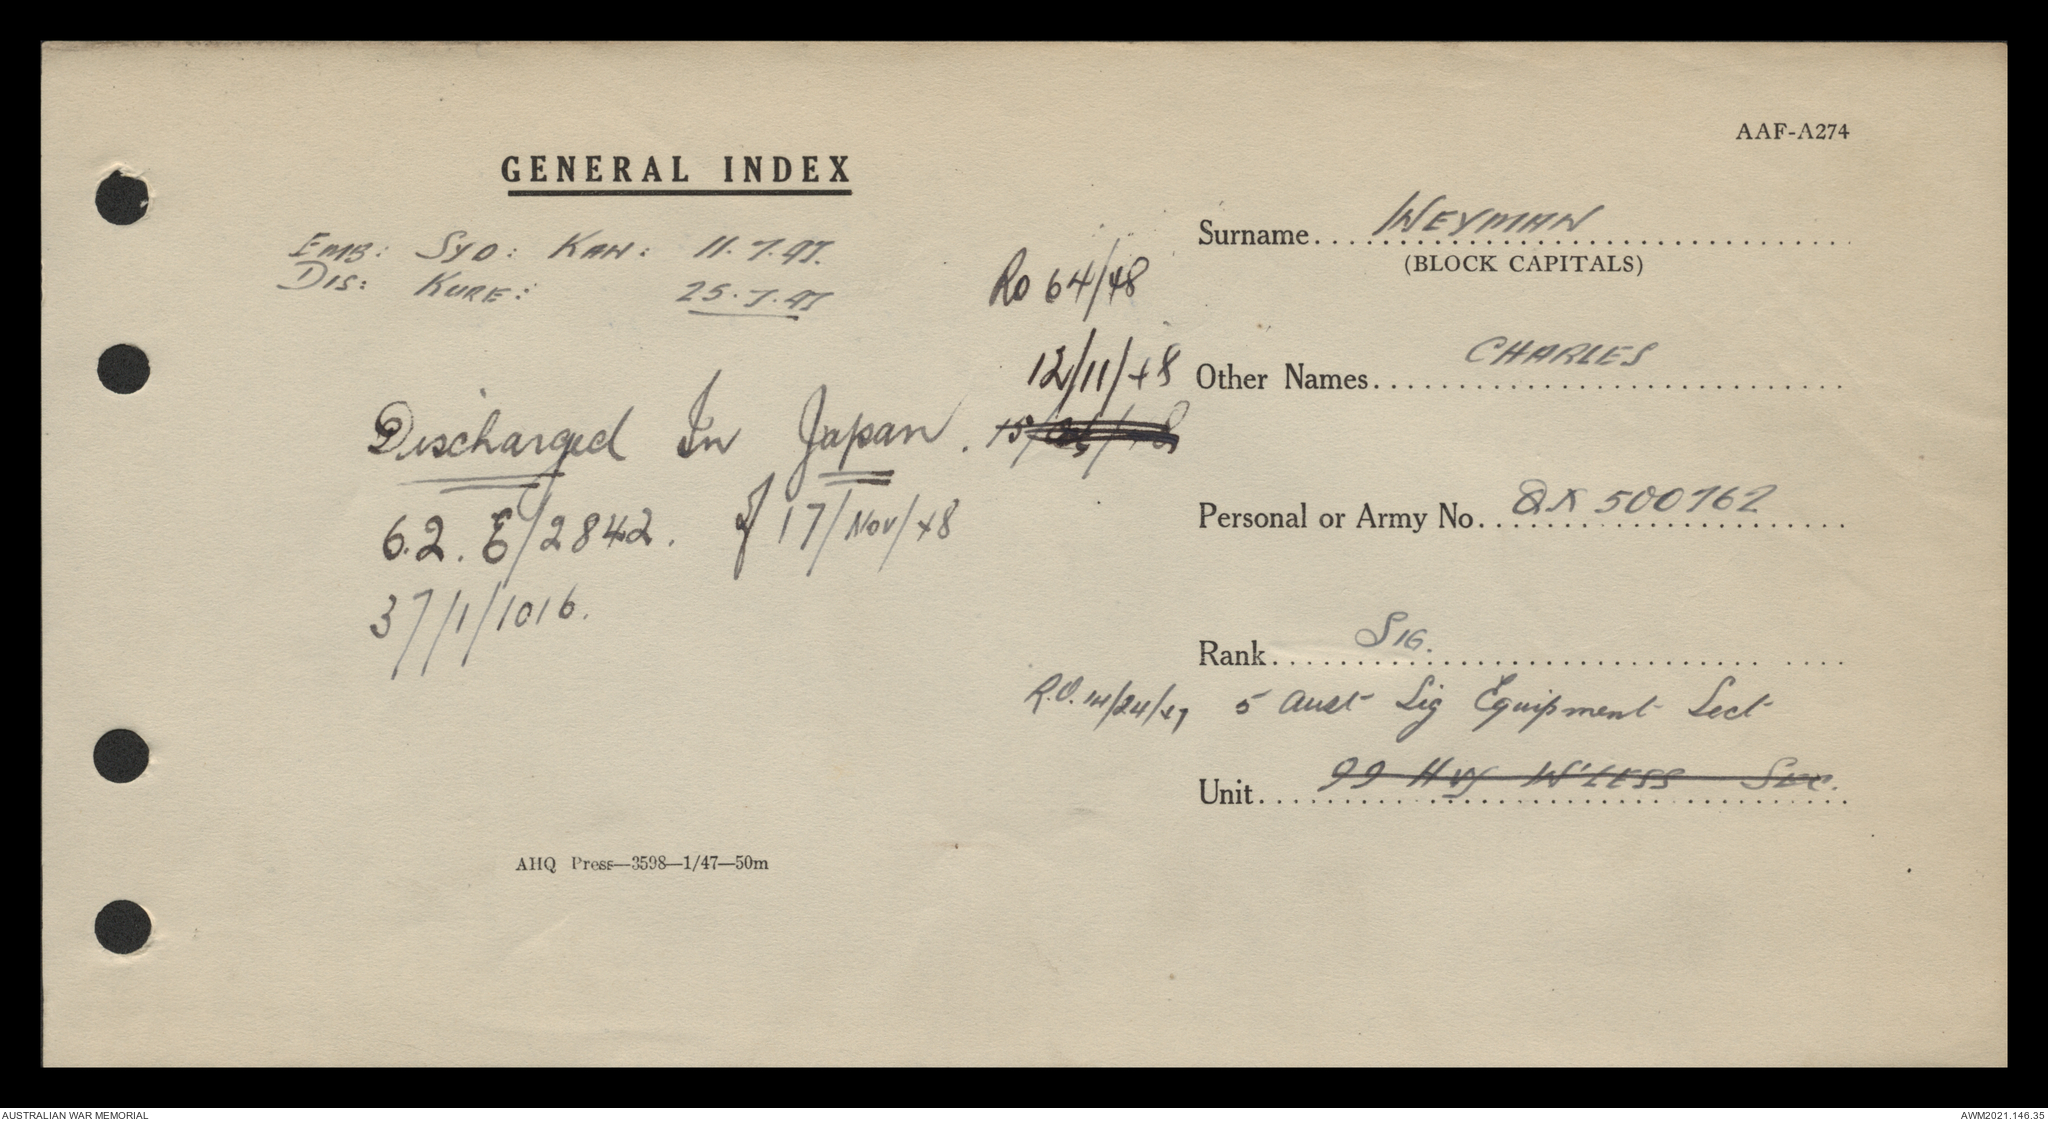 AAF-A274
GENERAL INDEX
EMB: SYD: KAN: 11.7.47.
DIS: KURE: 25.7.47
Ro 64/48
12/11/48
Discharged In Japan.
62. E/2842. of 17/Nov/48
37/1/1016.
Surname WEYMAN
(BLOCK CAPITALS)
Other Names CHARLES
Personal or Army No. QX 500762
Rank SIG.
R.O. 14/24/47 5 Aust Sig Equipment Sect
Unit 99 Hvy W'LESS SEC.
AHQ Press—3598—1/47—50m
AUSTRALIAN WAR MEMORIAL
AWM2021.146.35